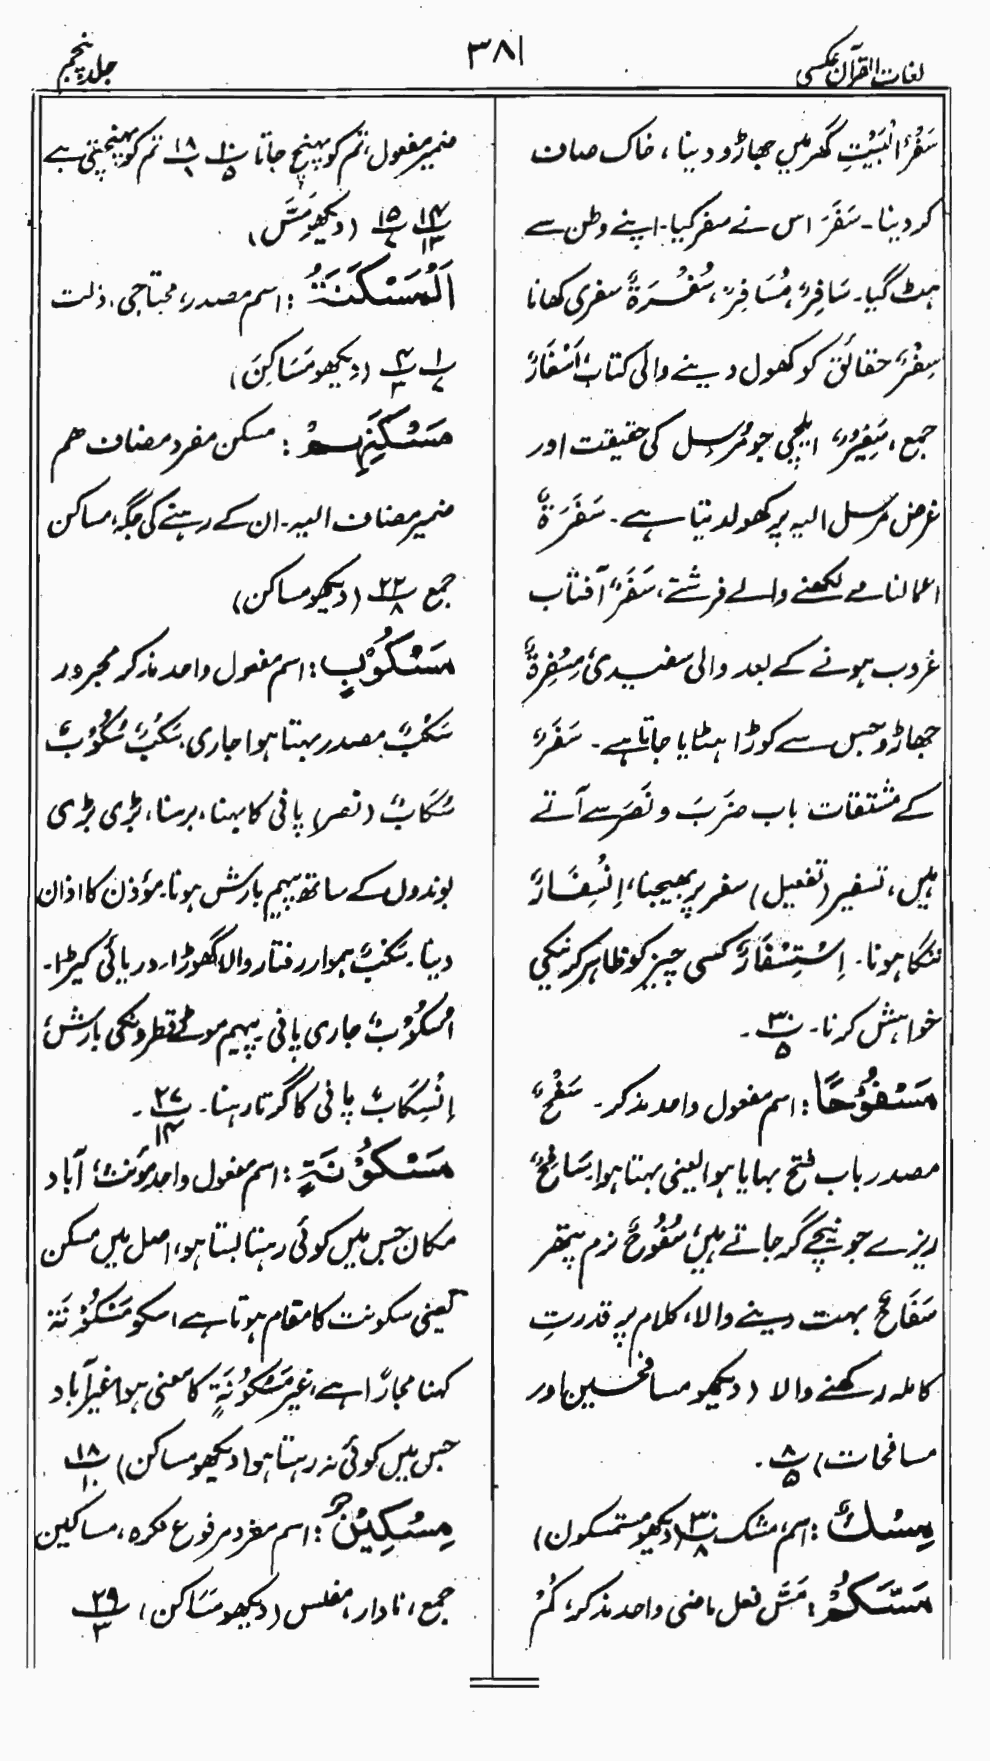 لغات القرآن عکسی
۳۸۱
جلد پنجم
سَفْرُ الْبَيْتِ گھر میں جھاڑو دینا، خاک صاف
کر دینا۔ سَفَرَ اس نے سفر کیا۔ اپنے وطن سے
ہٹ گیا۔ سَافِرٌ، مُسَافِرٌ، سُفْرَةٌ سفری کھانا
سِفْرٌ حقائق کو کھول دینے والی کتاب، اَسْفَارٌ
جمع، سَفِيْرٌ، ایلچی جو مُرسِل کی حقیقت اور
غرض مرسل الیہ پر کھولدیتا ہے۔ سَفَرَةٌ
اعمالنامے لکھنے والے فرشتے، سَفَرٌ آفتاب
غروب ہونے کے بعد والی سفیدی، مِسْفَرَةٌ
جھاڑو جس سے کوڑا ہٹایا جاتا ہے۔ سَفَرٌ
کے مشتقات باب ضَرَبَ و نَصَرَ سے آتے
ہیں، تسفیر (تفعیل) سفر پر بھیجنا، اِنْسِفَارٌ
ننگا ہونا۔ اِسْتِسْفَارٌ کسی چیز کو ظاہر کرنیکی
خواہش کرنا۔ ۳۰/۵۔
مَسْفُوْحًا: اسم مفعول واحد مذکر۔ سَفْحٌ
مصدر باب فتح بہایا ہوا یعنی بہتا ہوا۔ سَافِحٌ
ریزے جو نیچے گر جاتے ہیں، سُفُوْحٌ نرم پتھر
سَفَّاحٌ بہت دینے والا، کلام پر قدرتِ
کاملہ رکھنے والا (دیکھو مسافحین اور
مسافحات) ۸/۵۔
مِسْكٌ: اسم، مشک ۳۰/۸ (دیکھو مستمسکون)
مَسَّكُمْ: مَسَّ فعل ماضی واحد مذکر، كُمْ
ضمیر مفعول، تم کو پہنچ جاتا ۱۰/۵ ۱۸/۱ تم کو پہنچتی ہے
۱۴/۱۳ ۱۵/۷ (دیکھو مَسَّ)
اَلْمَسْكَنَةُ: اسم مصدر، محتاجی، ذلت
۱/۷ ۴/۳ (دیکھو مَسَاكِنَ)
مَسْكَنِهِمْ: مسکن مفرد مضاف ھم
ضمیر مضاف الیہ۔ ان کے رہنے کی جگہ، مساکن
جمع ۲۲/۸ (دیکھو مساکن)
مَسْكُوْبٍ: اسم مفعول واحد مذکر مجرور
سَكْبٌ مصدر بہتا ہوا جاری، سَكْبٌ سُكُوْبٌ
سَكَابٌ (نصر) پانی کا بہنا، برسنا، بڑی بڑی
بوندوں کے ساتھ پیہم بارش ہونا۔ مؤذن کا اذان
دینا۔ سَكْبٌ ہموار رفتار والا گھوڑا۔ دریائی کیڑا۔
اُسْكُوْبٌ جاری پانی۔ پیہم موٹے قطرونکی بارش،
اِنْسِكَابٌ پانی کا گرتا رہنا۔ ۲۷/۱۴۔
مَسْكُوْنَةٍ: اسم مفعول واحد مؤنث، آباد
مکان جس میں کوئی رہتا بستا ہو، اصل میں مسکن
یعنی سکونت کا مقام ہوتا ہے، اسکو مَسْكُوْنَة
کہنا مجازًا ہے، غیر مَسْكُوْنَةٍ کا معنی ہوا غیر آباد
جس میں کوئی نہ رہتا ہو (دیکھو مساکن) ۱۸/۱۰
مِسْكِيْنٌ: اسم مفرد مرفوع نکرہ، مساکین
جمع، نادار، مفلس (دیکھو مَسَاكن)، ۲۹/۳